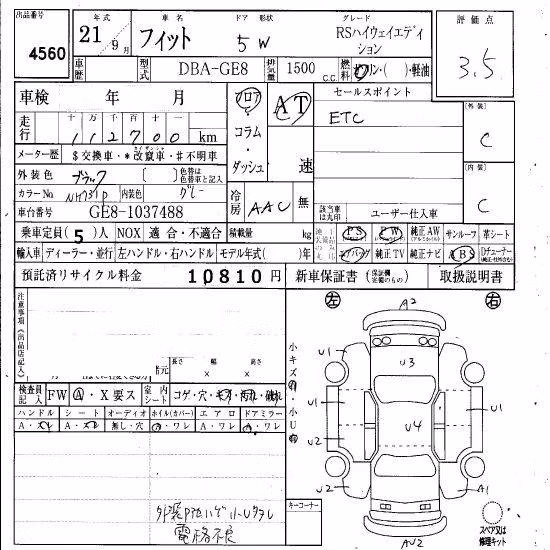 出品番号 年式 車名 ドア 形状 グレード 評価点
4560 21年9月 フィット 5 W RSハイウェイエディション 3.5
車歴 型式 DBA-GE8 排気量 1500 C.C. 燃料 ガソリン・( )・軽油
車検 年 月 フロア・コラム・ダッシュ AT 速 セールスポイント 外装 C
走行 十万千百十一 112700 km ETC
メーター歴 $交換車・*改竄車・#不明車 内装 C
外装色 ブラック [ ] 色替は色替車と記入
カラーNo NH731P 内装色 グレー 冷房 AAC 無
車台番号 GE8-1037488 該当車は丸印 ユーザー仕入車
乗車定員(5)人 NOX 適合・不適合 積載量 kg PS PW 純正AW サンルーフ 革シート
輸入車 ディーラー・並行 左ハンドル・右ハンドル モデル年式( )年 エアバッグ 純正TV 純正ナビ ABS Dチューナー
預託済リサイクル料金 10810円 新車保証書(保証欄定表のもの) 取扱説明書
注意事項(出品店記入) 左 A2 右
小キズ・小U
U1 U3 U1
U1 U4 U1
U2
U2 A1
AU2
諸元 長さ × 幅 × 高さ
検査員記入 FW A・X要ス 室内シート コゲ・穴・キズ・汚れ・破れ
ハンドル シート オーディオ ホイル(カバー) エアロ ドアミラー
A・スレ A・スレ 無し・穴 A・ワレ A・ワレ A・ワレ
小U
電格不良
キーコーナー
スペア又は修理キット